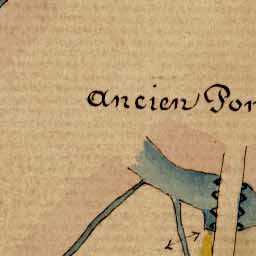 ancien Por